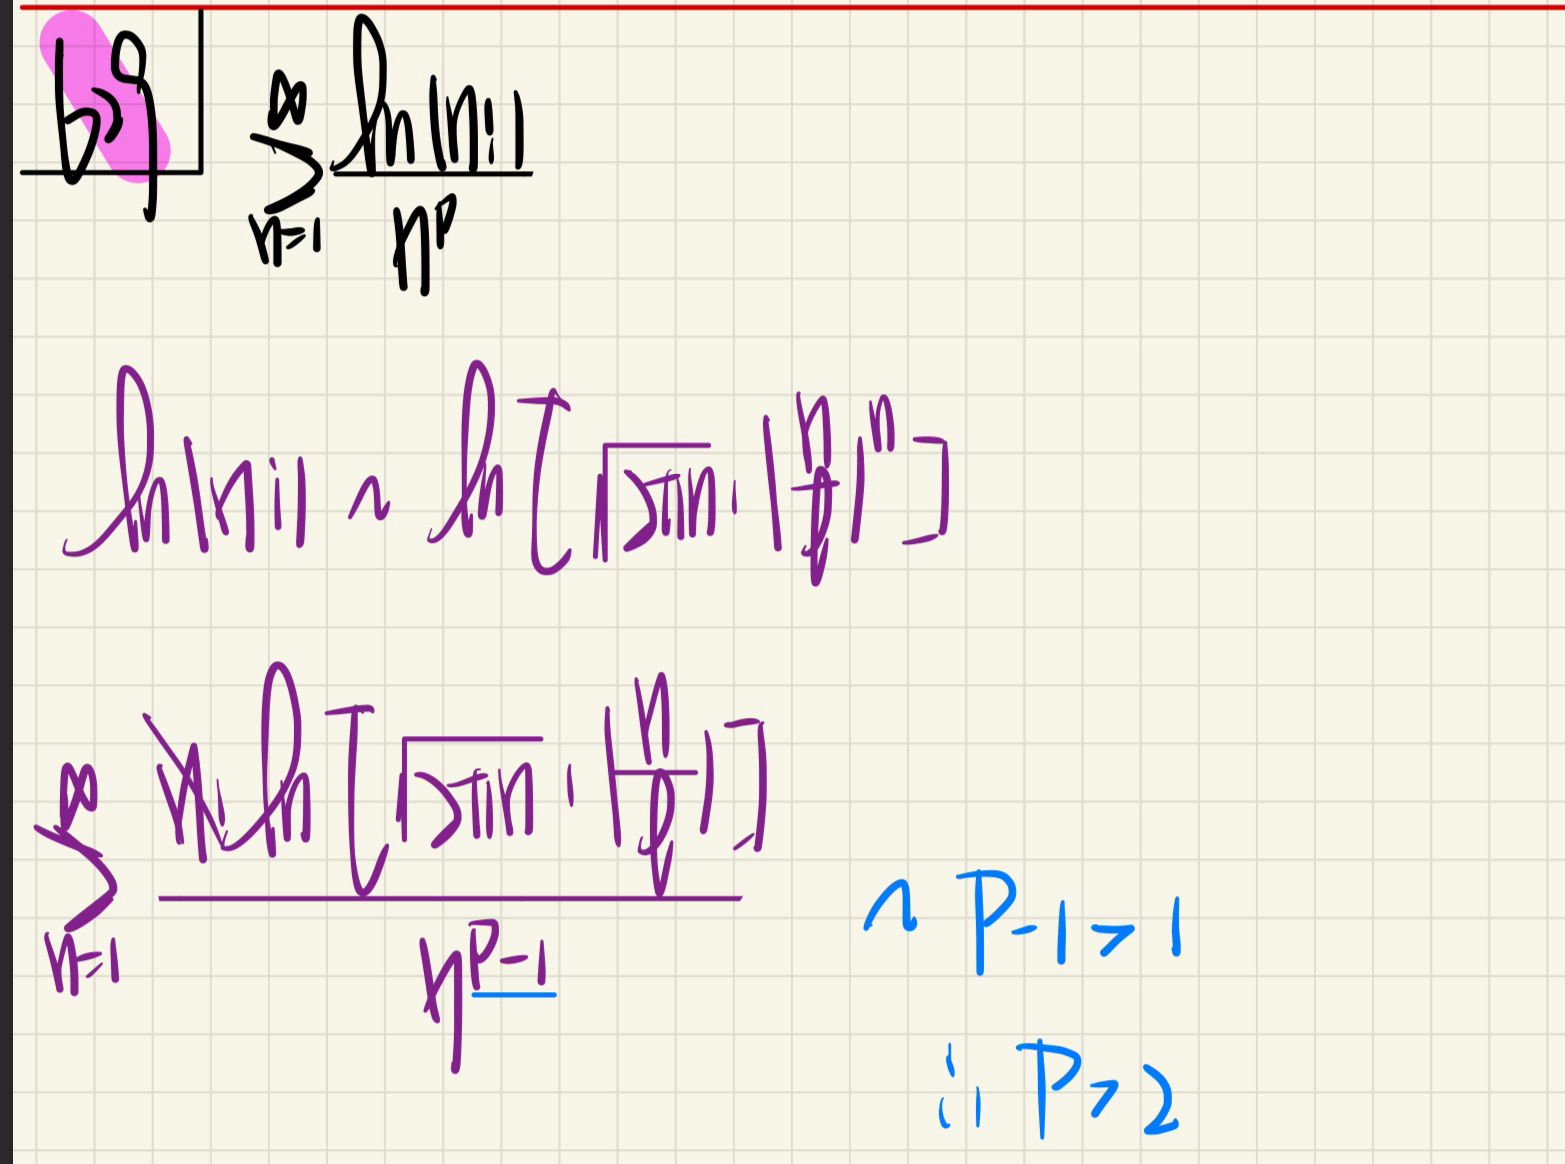 629
∞ Σ n=1 ln(n!) / n^p
ln(n!) ~ ln[√2πn · (n/e)^n]
∞ Σ n=1 n · ln[√2πn · (n/e)] / n^(p-1) ~ P-1>1
∴ P>2